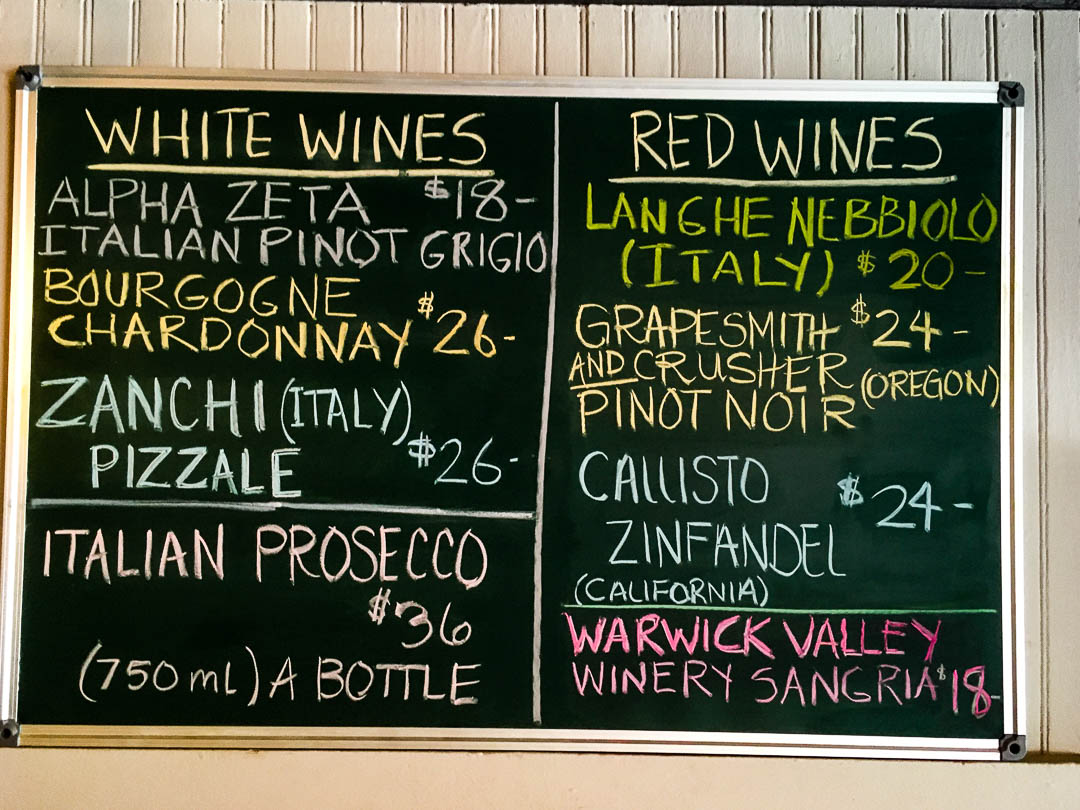 WHITE WINES
ALPHA ZETA $18-
ITALIAN PINOT GRIGIO
BOURGOGNE
CHARDONNAY $26-
ZANCHI (ITALY)
PIZZALE $26-
ITALIAN PROSECCO
$36
(750 mL) A BOTTLE
RED WINES
LANGHE NEBBIOLO
(ITALY) $20-
GRAPESMITH $24-
AND CRUSHER (OREGON)
PINOT NOIR
CALLISTO $24-
ZINFANDEL
(CALIFORNIA)
WARWICK VALLEY
WINERY SANGRIA $18-